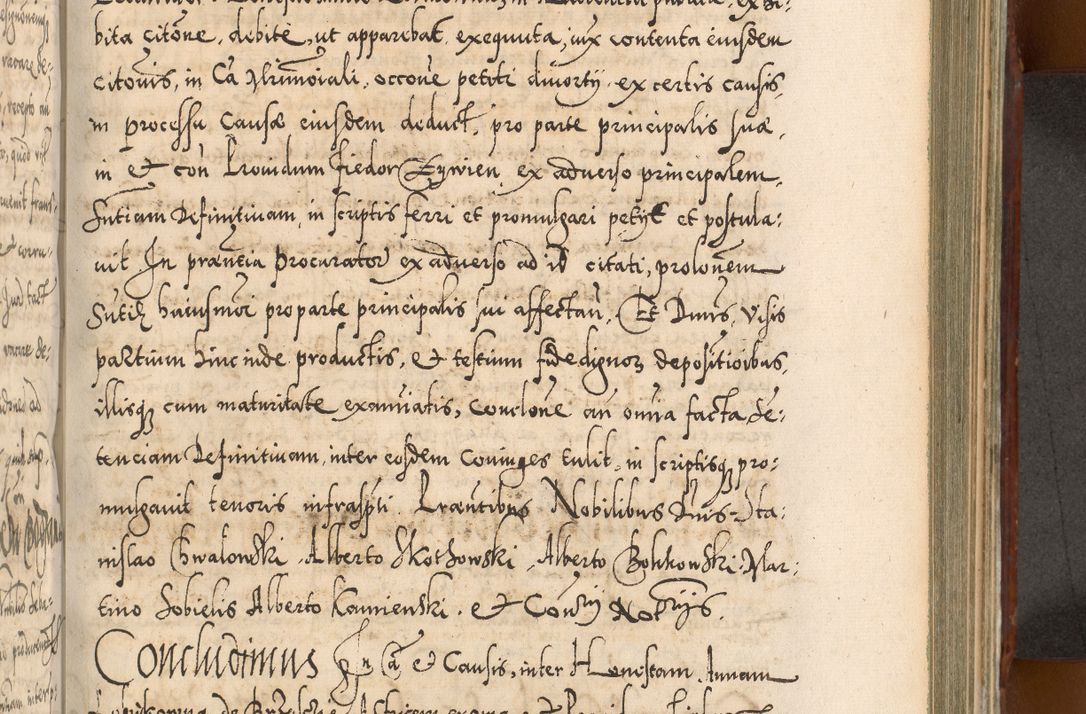 bita citõne, debite, ut apparebat, exequuta, iux contenta eiusdem
citõnis, in Cã Mrimoiali, occõne petiti divortij, ex certis causis,
in processu causæ eiusdem deduct, pro parte principalis suæ,
in et con Providum Fiedor Zywien ex adverso principalem,
Sntiam Definitivam, in scriptis ferri et promulgari petijt et postula:
vit. In præntia Procurator ex adverso ad id citati, prolonem
Sntiæ huiusmoi pro parte principalis sui affectan. Et Dnus, visis
partium hinc inde productis, et testium fide dignoꝝ depositioibus,
illisqꝫ cum maturitate examiatis, Conclone an omia facta, Se:
tenciam Definitivam, inter eosdem Coniuges tulit, in scriptisqꝫ pro:
mulgavit tenoris infraspti. Præntibus Nobilibus Dnis Sta:
nislao Chwalowski, Alberto Skothowski, Alberto Bolikowski, Mar:
tino Sobielis Alberto Kamienski. et Conrij Notrijs.
Concludimus In Cã et Causis, inter Honestam Annam